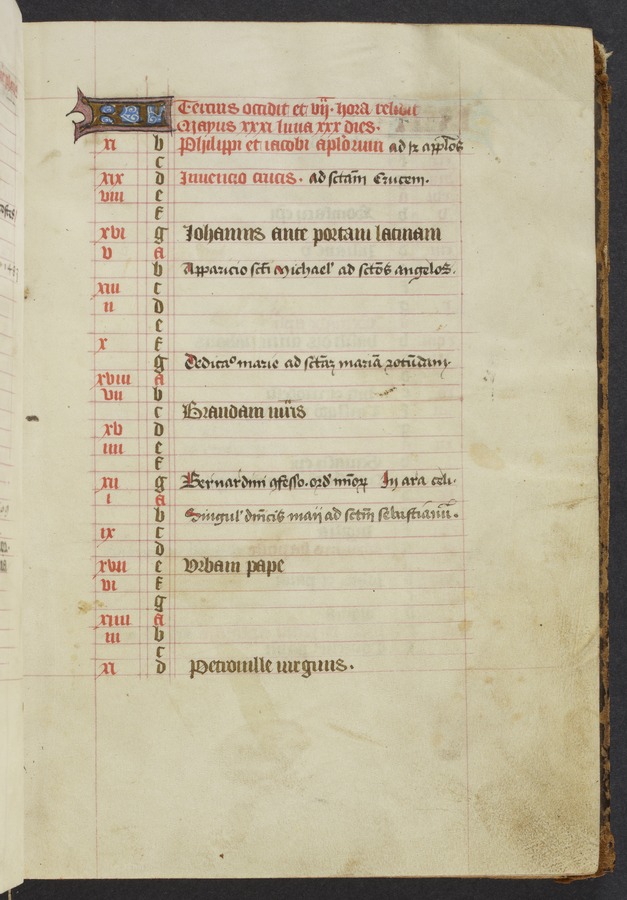 KL Tercius occidit et vij. hora relidit
Mayus xxxi luna xxx dies.
xi b Philippi et iacobi aplorum ad
c
xix d Inuencio crucis. ad sctam Crucem.
viii e
f
xvi g Iohannis ante portam latinam
v a
b Apparicio scti Michael' ad sctos angelos.
xiii c
ii d
e
x f
g Dedicao marie ad sctam mariā rotūdam
xviii a
vii b
c Brandam
xv d
iiii e
f
xii g Bernardini ɔfesso. ord minor In ara celi.
i a
b Singul' dnicis maii ad sctm sebastianū.
ix c
d
xvii e Vrbani pape
vi f
g
xiiii a
iii b
c
xi d Petronille virginis.